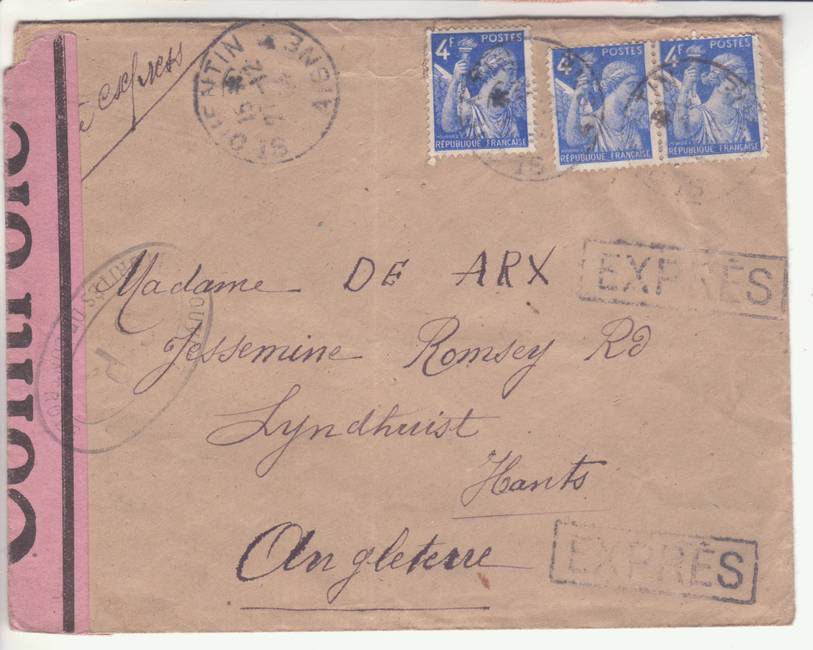 exprès
ST QUENTIN * AISNE *
4F POSTES
RÉPUBLIQUE FRANÇAISE
4F POSTES
RÉPUBLIQUE FRANÇAISE
4F POSTES
RÉPUBLIQUE FRANÇAISE
EXPRÈS
Madame DE ARX
Jessemine Romsey Rd
Lyndhuist
Hants
Angleterre
EXPRÈS